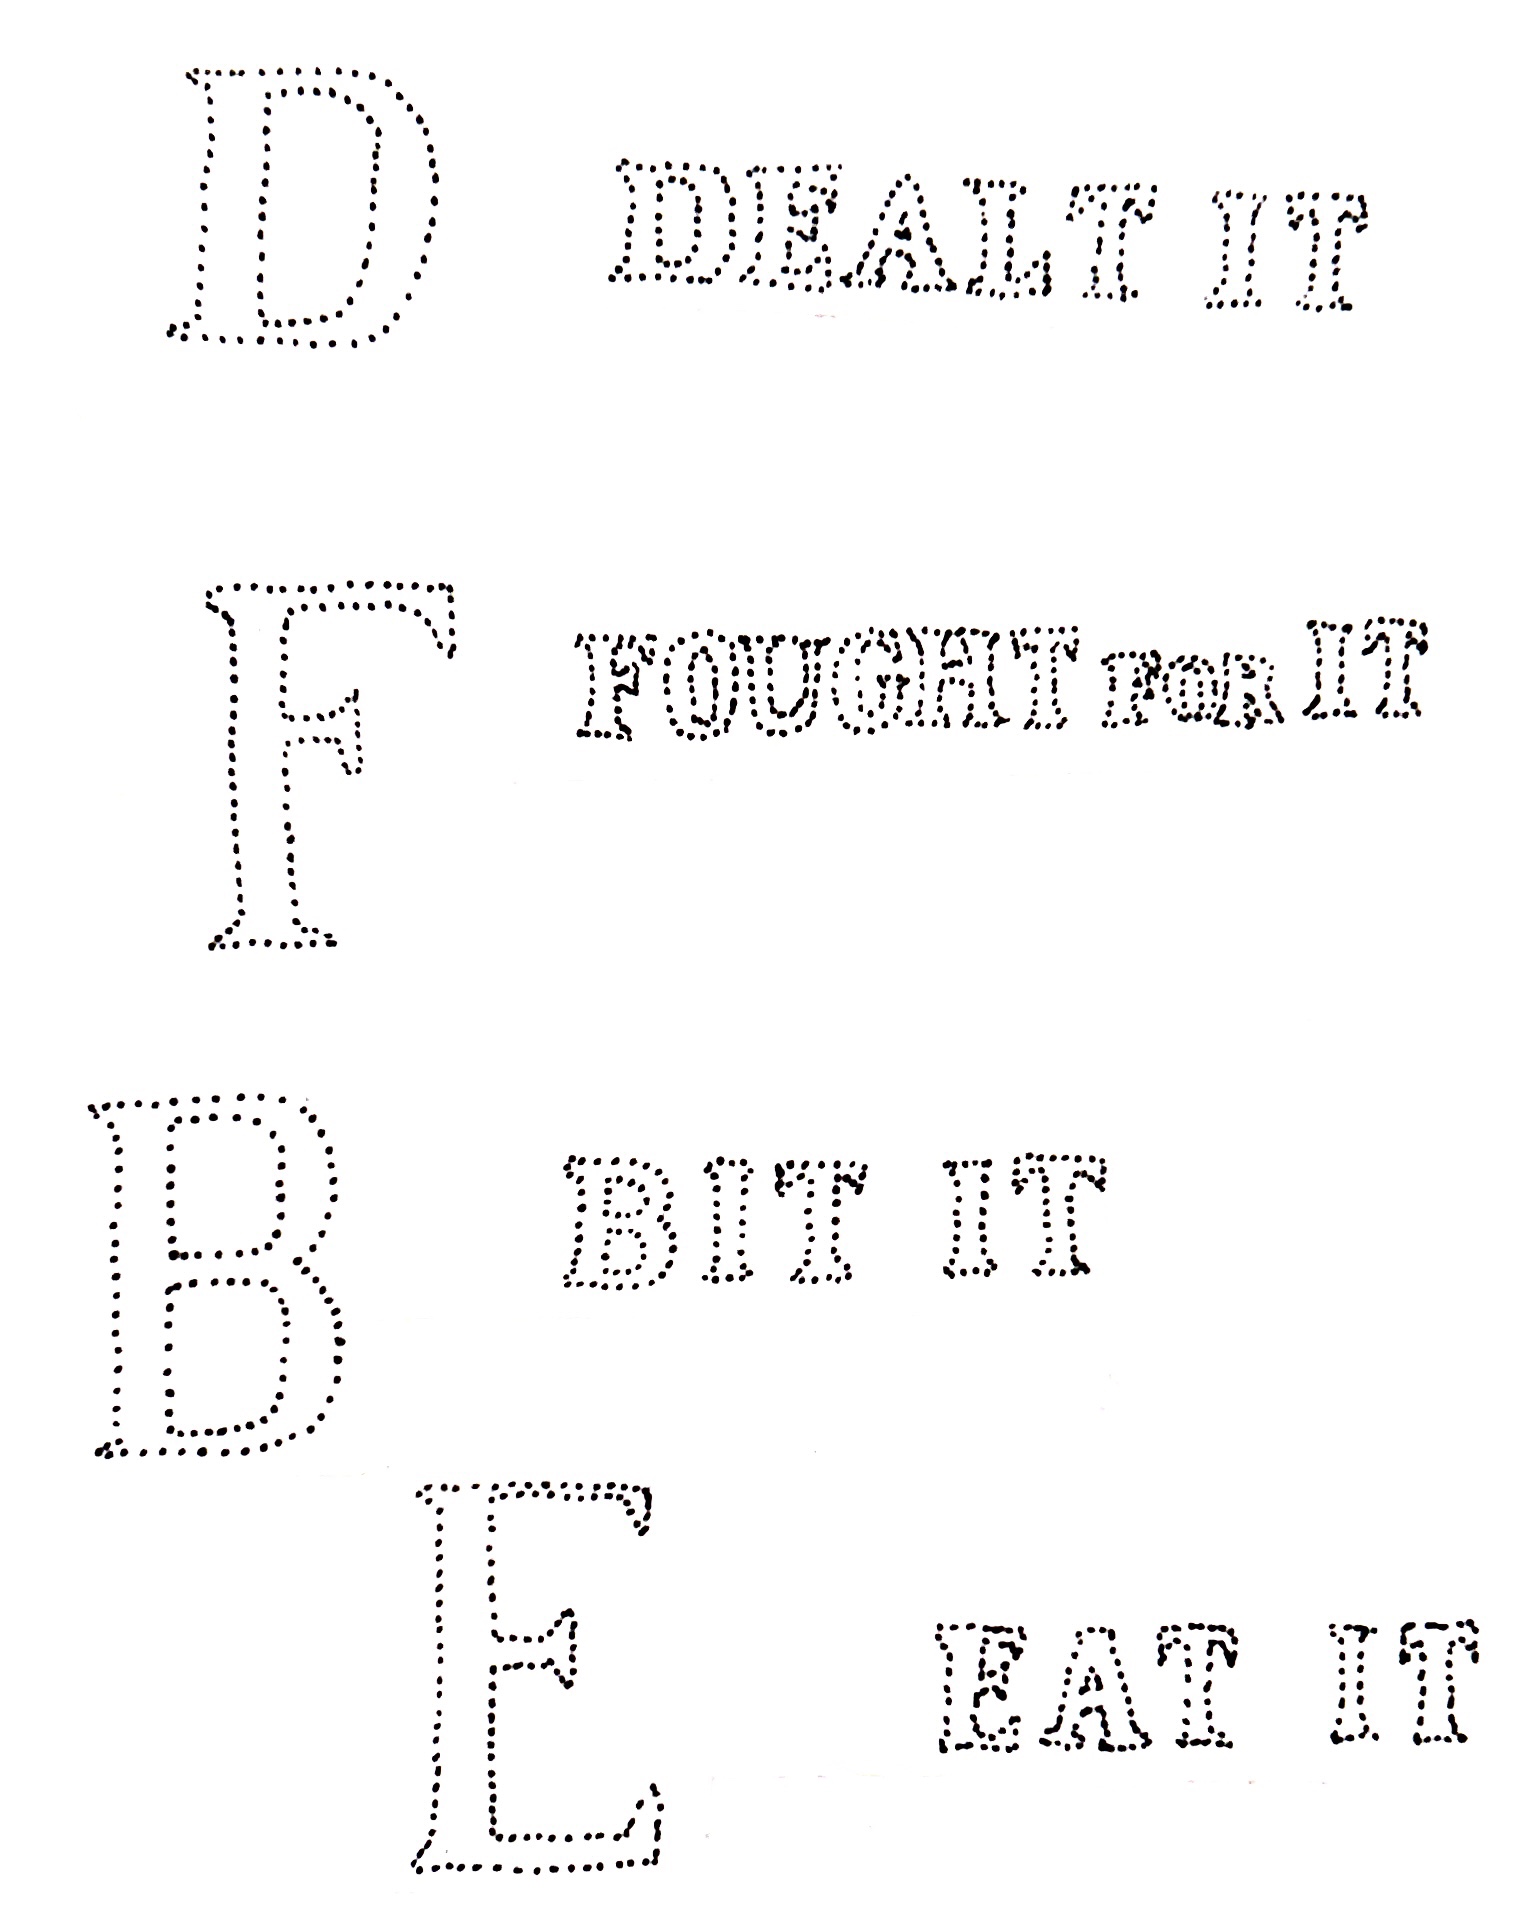 D DEALT IT
F FOUGHT FOR IT
B BIT IT
E EAT IT